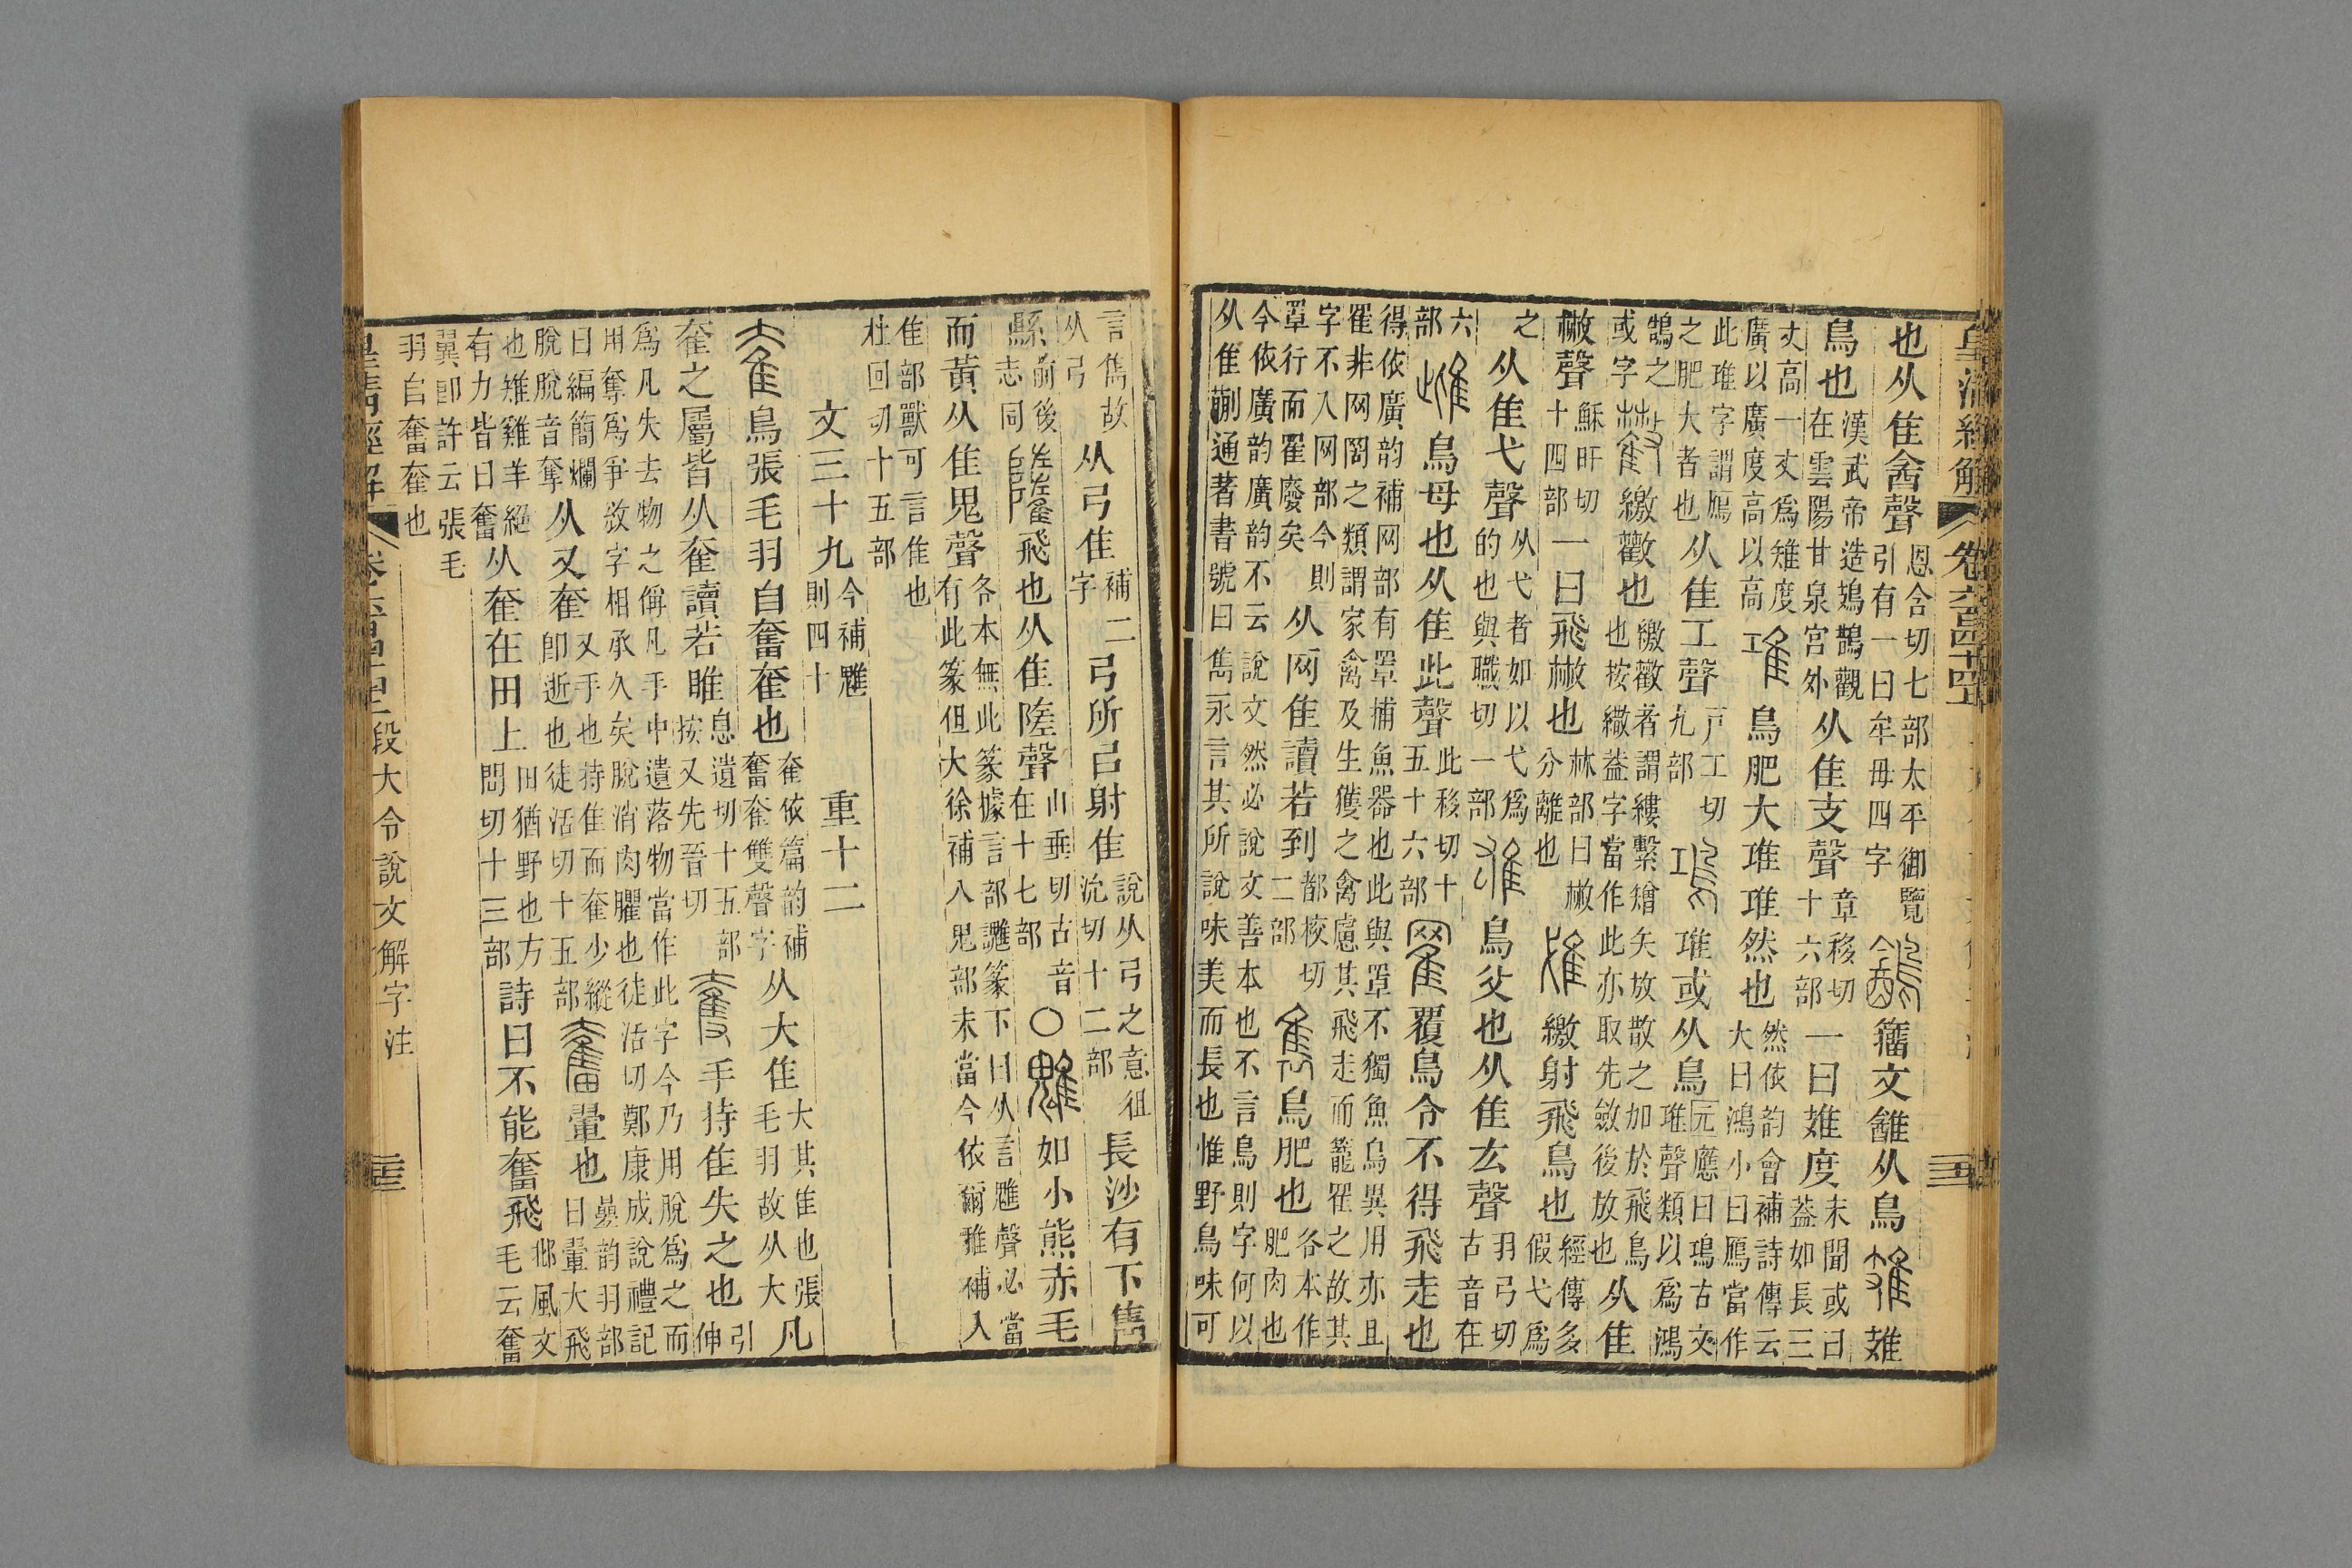 皇清經解 卷六百四十四
也从隹酓聲恩含切七部太平御覽引有一曰牟毋四字籒文雂从鳥
鳥也漢武帝造鳷鵲觀在雲陽甘泉宮外从隹支聲章移切十六部一曰雉度未聞或曰蓋如長三
丈高一丈爲雉度廣以廣度高以高鳥肥大䧺䧺然也然依韵會補詩傳云大曰鴻小曰鴈當作
此䧺字謂鴈之肥大者也从隹工聲戸工切九部䧺或从鳥元應曰鳿古文䧺聲類以爲鴻
鵠之或字繳䉷也繳䉷者謂縷繫矰矢放散之加於飛鳥也按繖蓋字當作此亦取先斂後放也从隹
㪔聲穌旰切十四部一曰飛㪔也㪔部曰㪔分離也繳射飛鳥也經傳多假弋爲
之从隹弋聲从弋者如以弋爲的也與職切一部鳥父也从隹厷聲羽弓切古音在
六部鳥母也从隹此聲此移切十五十六部覆鳥令不得飛走也
得依廣韵補网部有罩捕魚器也此與罩不獨魚鳥異用亦且罹非网罔之類謂家禽及生獲之禽慮其飛走而籠罹之故其
字不入网部今則罩行而罹廢矣从网隹讀若到都校切二部鳥肥也各本作肥肉也
今依廣韵廣韵不云說文然必說文善本也不言鳥則字何以从隹蒯通著書號曰雋永言其所說味美而長也惟野鳥味可
言雋故从弓从弓隹補字二弓所㠯射隹說从弓之意徂沇切十二部長沙有下雋
縣前後志同飛也从隹陸聲山垂切古音在十七部〇如小熊赤毛
而黃从隹鬼聲各本無此篆據言部讙篆下曰从言雖聲必當有此篆但大徐補入鬼部未當今依爾雅補入
隹部獸可言隹也杜回切十五部
文三十九今補則四十 重十二
鳥張毛羽自奮奞也奞依篇韵補奮奞雙聲字从大隹大其隹也張毛羽故从大凡
奞之屬皆从奞讀若睢息遺切十五部按又先晉切手持隹失之也引伸
爲凡失去物之偁凡手中遺落物當作此字今乃用脫爲之而用奪爲爭敓字相承久矣脫消肉臞也徒活切鄭康成說禮記
曰編簡爛脫脫音奪从又奞又手也持隹而奞少縱卽逝也徒活切十五部翬也羣韵羽部曰翬大飛
也雉雞羊絕有力皆曰奮从奞在田上田猶野也方問切十三部詩曰不能奮飛邶風文毛云奮
翼卽許云張毛羽自奮奞也
皇清經解 段大令說文解字注